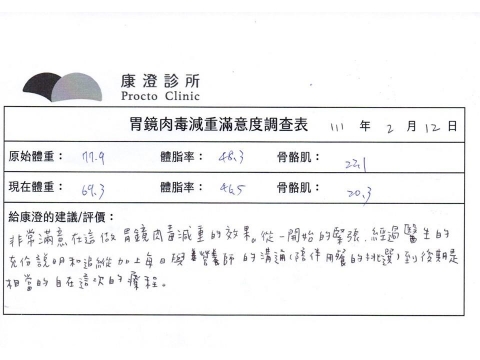 康澄診所
Procto Clinic
胃鏡肉毒減重滿意度調查表 111 年 2 月 12 日
原始體重： 77.9 體脂率： 48.3 骨骼肌： 22.1
現在體重： 69.3 體脂率： 46.5 骨骼肌： 20.3
給康澄的建議/評價：
非常滿意在這做胃鏡肉毒減重的效果。從一開始的緊張，經過醫生的
充份說明和追縱加上每日與營養師的溝通(陪伴用餐的挑選)到後期是
相當的自在這次的療程。